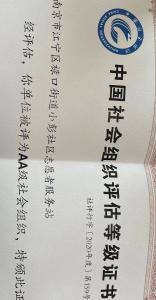 中国社会组织评估等级证书
社评行字〔2020年度〕第159号
南京市江宁区禄口街道小彭社区志愿者服务站
经评估，你单位被评为AA级社会组织，特颁此证